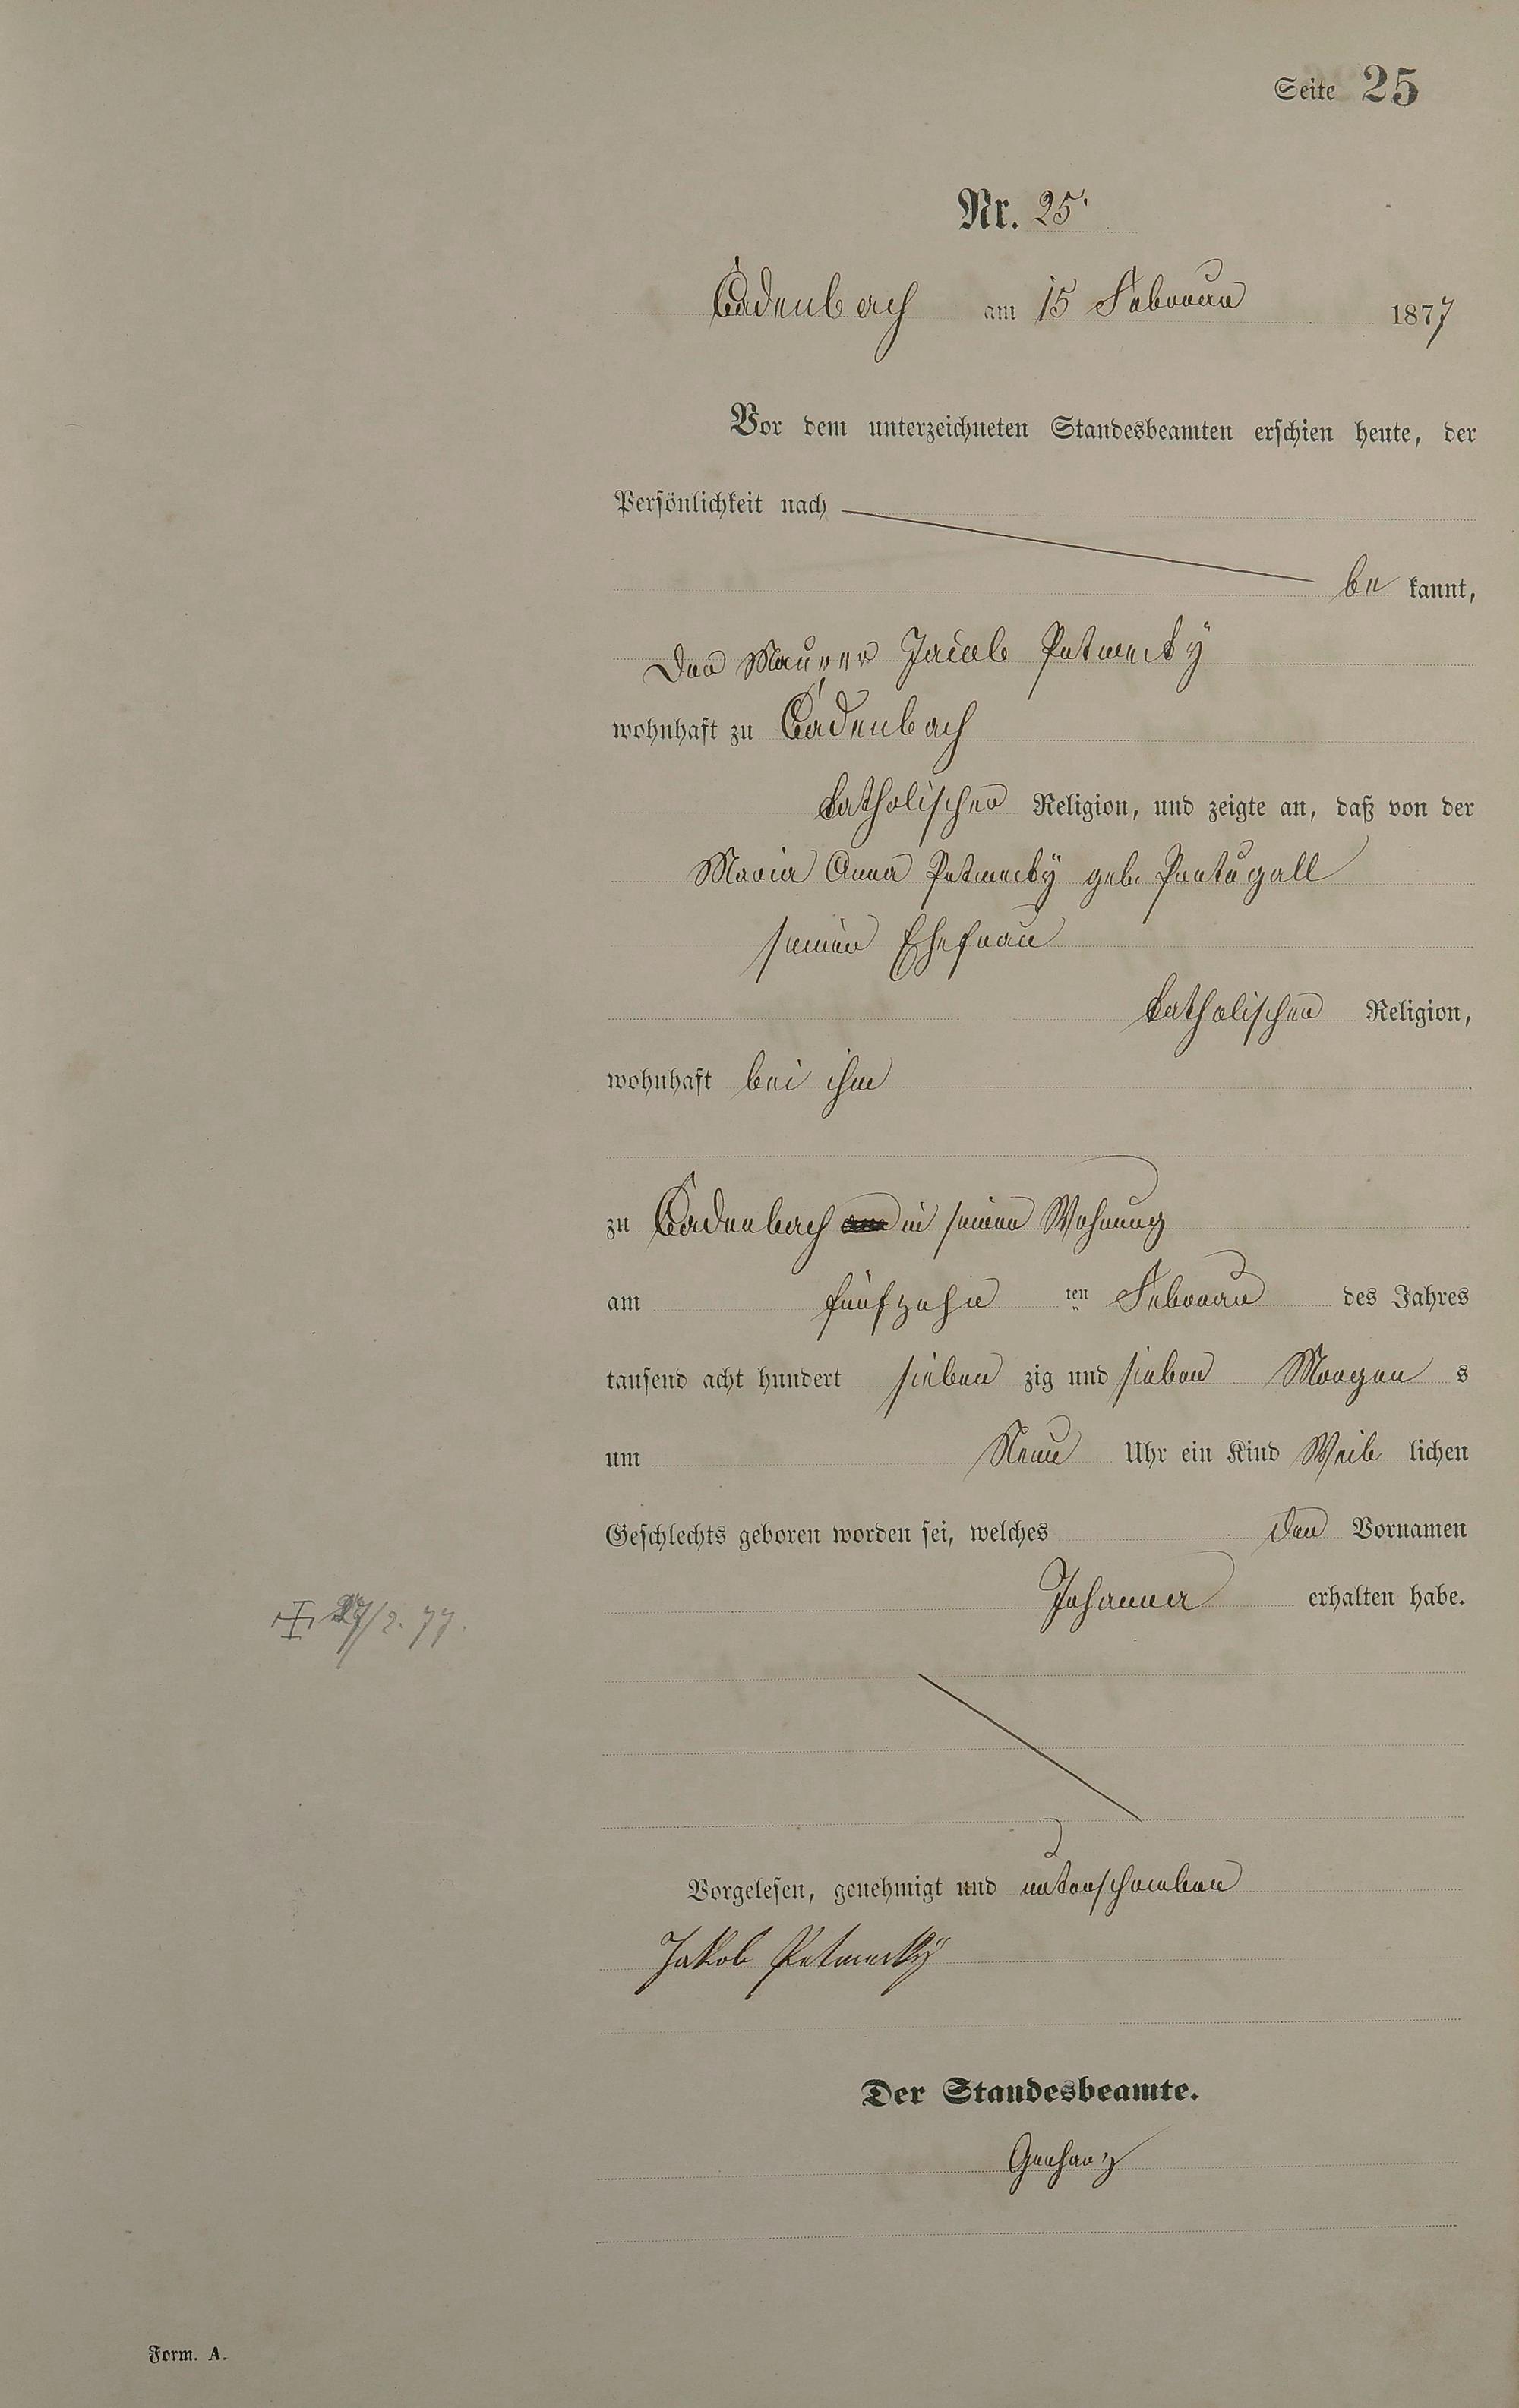 Seite 25
Nr. 25.
Cadenbach am 15 Februar 1877
Vor dem unterzeichneten Standesbeamten erschien heute, der
Persönlichkeit nach
be kannt,
Der Maurer Jacob Petmecky
wohnhaft zu Cadenbach
katholischer Religion, und zeigte an, daß von der
Maria Anna Petmecky geb. Portugall
seiner Ehefrau
katholischer Religion,
wohnhaft bei ihm
zu Cadenbach in seiner Wohnung
am fünfzehn ten Februar des Jahres
tausend acht hundert sieben zig und sieben Morgen s
um Neun Uhr ein Kind Weib lichen
Geschlechts geboren worden sei, welches den Vornamen
Johanna erhalten habe.
/2. 77.
Vorgelesen, genehmigt und unterschrieben
Jakob Petmecky
Der Standesbeamte.
Form. A.